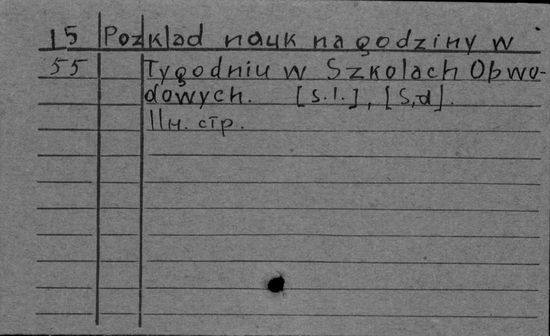 15 Pozklad nauk na godziny w
55 Tygodniu w Szkolach Obwo-
dowych. [s.l.], [S,d].
IIн. стр.